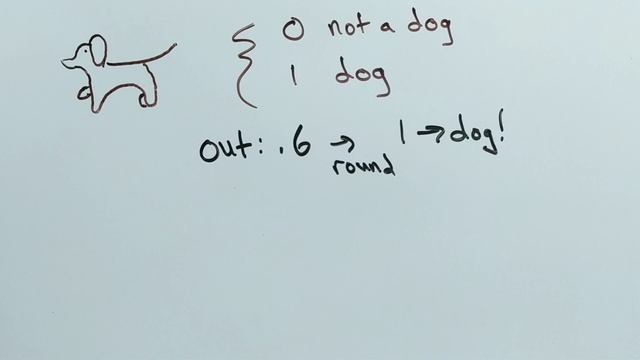 0 not a dog
1 dog
out: .6 → 1 → dog!
round